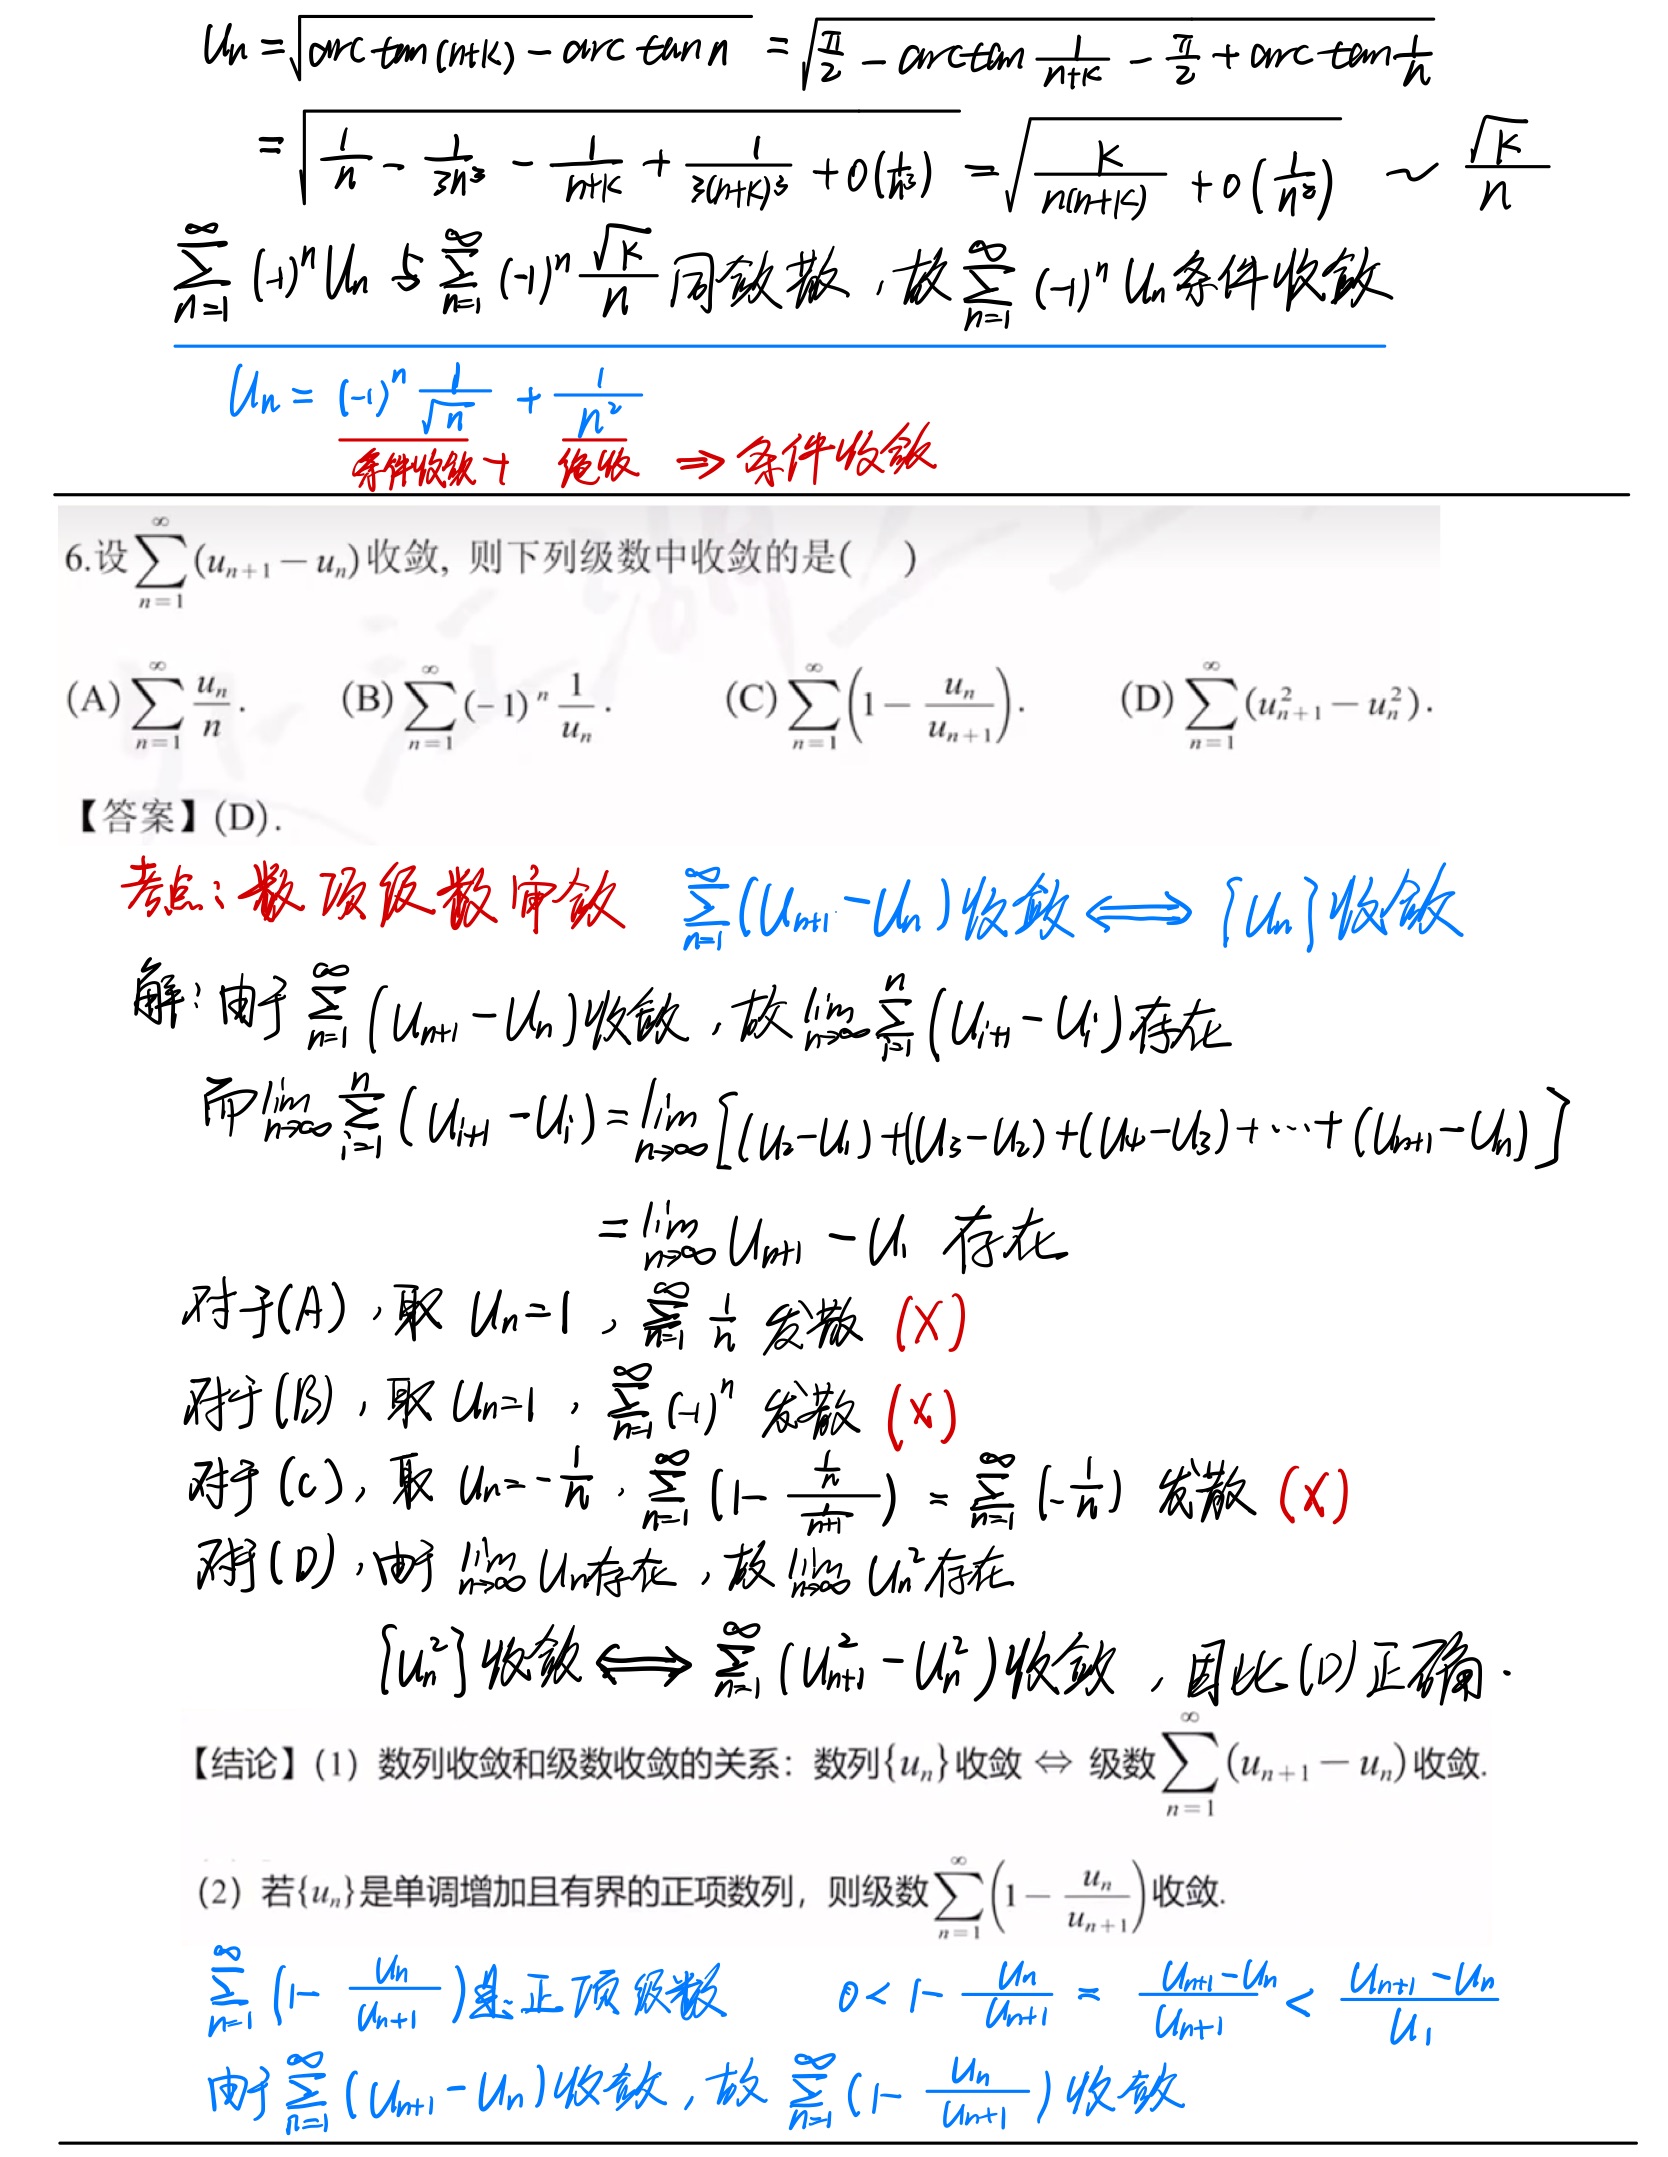 Uₙ = √(arctan(n+k) − arctan n) = √(π/2 − arctan 1/(n+k) − π/2 + arctan 1/n)
= √(1/n − 1/(3n³) − 1/(n+k) + 1/(3(n+k)³) + o(1/n³)) = √(k/(n(n+k)) + o(1/n³)) ~ √k/n
∑_{n=1}^{∞} (-1)ⁿ Uₙ 与 ∑_{n=1}^{∞} (-1)ⁿ √k/n 同敛散，故 ∑_{n=1}^{∞} (-1)ⁿ Uₙ 条件收敛
Uₙ = (-1)ⁿ 1/√n + 1/n²
条件收敛 + 绝收 ⇒ 条件收敛
6.设∑_{n=1}^{∞}(uₙ₊₁ − uₙ)收敛, 则下列级数中收敛的是( )
(A)∑_{n=1}^{∞} uₙ/n. (B)∑_{n=1}^{∞}(−1)ⁿ 1/uₙ. (C)∑_{n=1}^{∞}(1 − uₙ/uₙ₊₁). (D)∑_{n=1}^{∞}(uₙ₊₁² − uₙ²).
【答案】(D).
考点：数项级数审敛 ∑_{n=1}^{∞}(Uₙ₊₁ − Uₙ)收敛 ⟺ {Uₙ}收敛
解：由于 ∑_{n=1}^{∞}(Uₙ₊₁ − Uₙ)收敛，故 lim_{n→∞} ∑_{i=1}^{n}(Uᵢ₊₁ − Uᵢ)存在
而 lim_{n→∞} ∑_{i=1}^{n}(Uᵢ₊₁ − Uᵢ) = lim_{n→∞}[(U₂−U₁)+(U₃−U₂)+(U₄−U₃)+⋯+(Uₙ₊₁−Uₙ)]
= lim_{n→∞} Uₙ₊₁ − U₁ 存在
对于(A)，取 Uₙ=1，∑_{n=1}^{∞} 1/n 发散 (×)
对于(B)，取 Uₙ=1，∑_{n=1}^{∞}(-1)ⁿ 发散 (×)
对于(C)，取 Uₙ=−1/n，∑_{n=1}^{∞}(1 − (1/n)/(1/(n+1))) = ∑_{n=1}^{∞}(−1/n) 发散 (×)
对于(D)，由于 lim_{n→∞} Uₙ存在，故 lim_{n→∞} Uₙ²存在
{uₙ²}收敛 ⟺ ∑_{n=1}^{∞}(Uₙ₊₁² − Uₙ²)收敛，因此(D)正确.
【结论】(1) 数列收敛和级数收敛的关系：数列{uₙ}收敛 ⇔ 级数∑_{n=1}^{∞}(uₙ₊₁ − uₙ)收敛.
(2) 若{uₙ}是单调增加且有界的正项数列，则级数∑_{n=1}^{∞}(1 − uₙ/uₙ₊₁)收敛.
∑_{n=1}^{∞}(1 − Uₙ/Uₙ₊₁)是正项级数 0 < 1 − Uₙ/Uₙ₊₁ = (Uₙ₊₁−Uₙ)/Uₙ₊₁ < (Uₙ₊₁−Uₙ)/U₁
由于∑_{n=1}^{∞}(Uₙ₊₁ − Uₙ)收敛，故 ∑_{n=1}^{∞}(1 − Uₙ/Uₙ₊₁)收敛